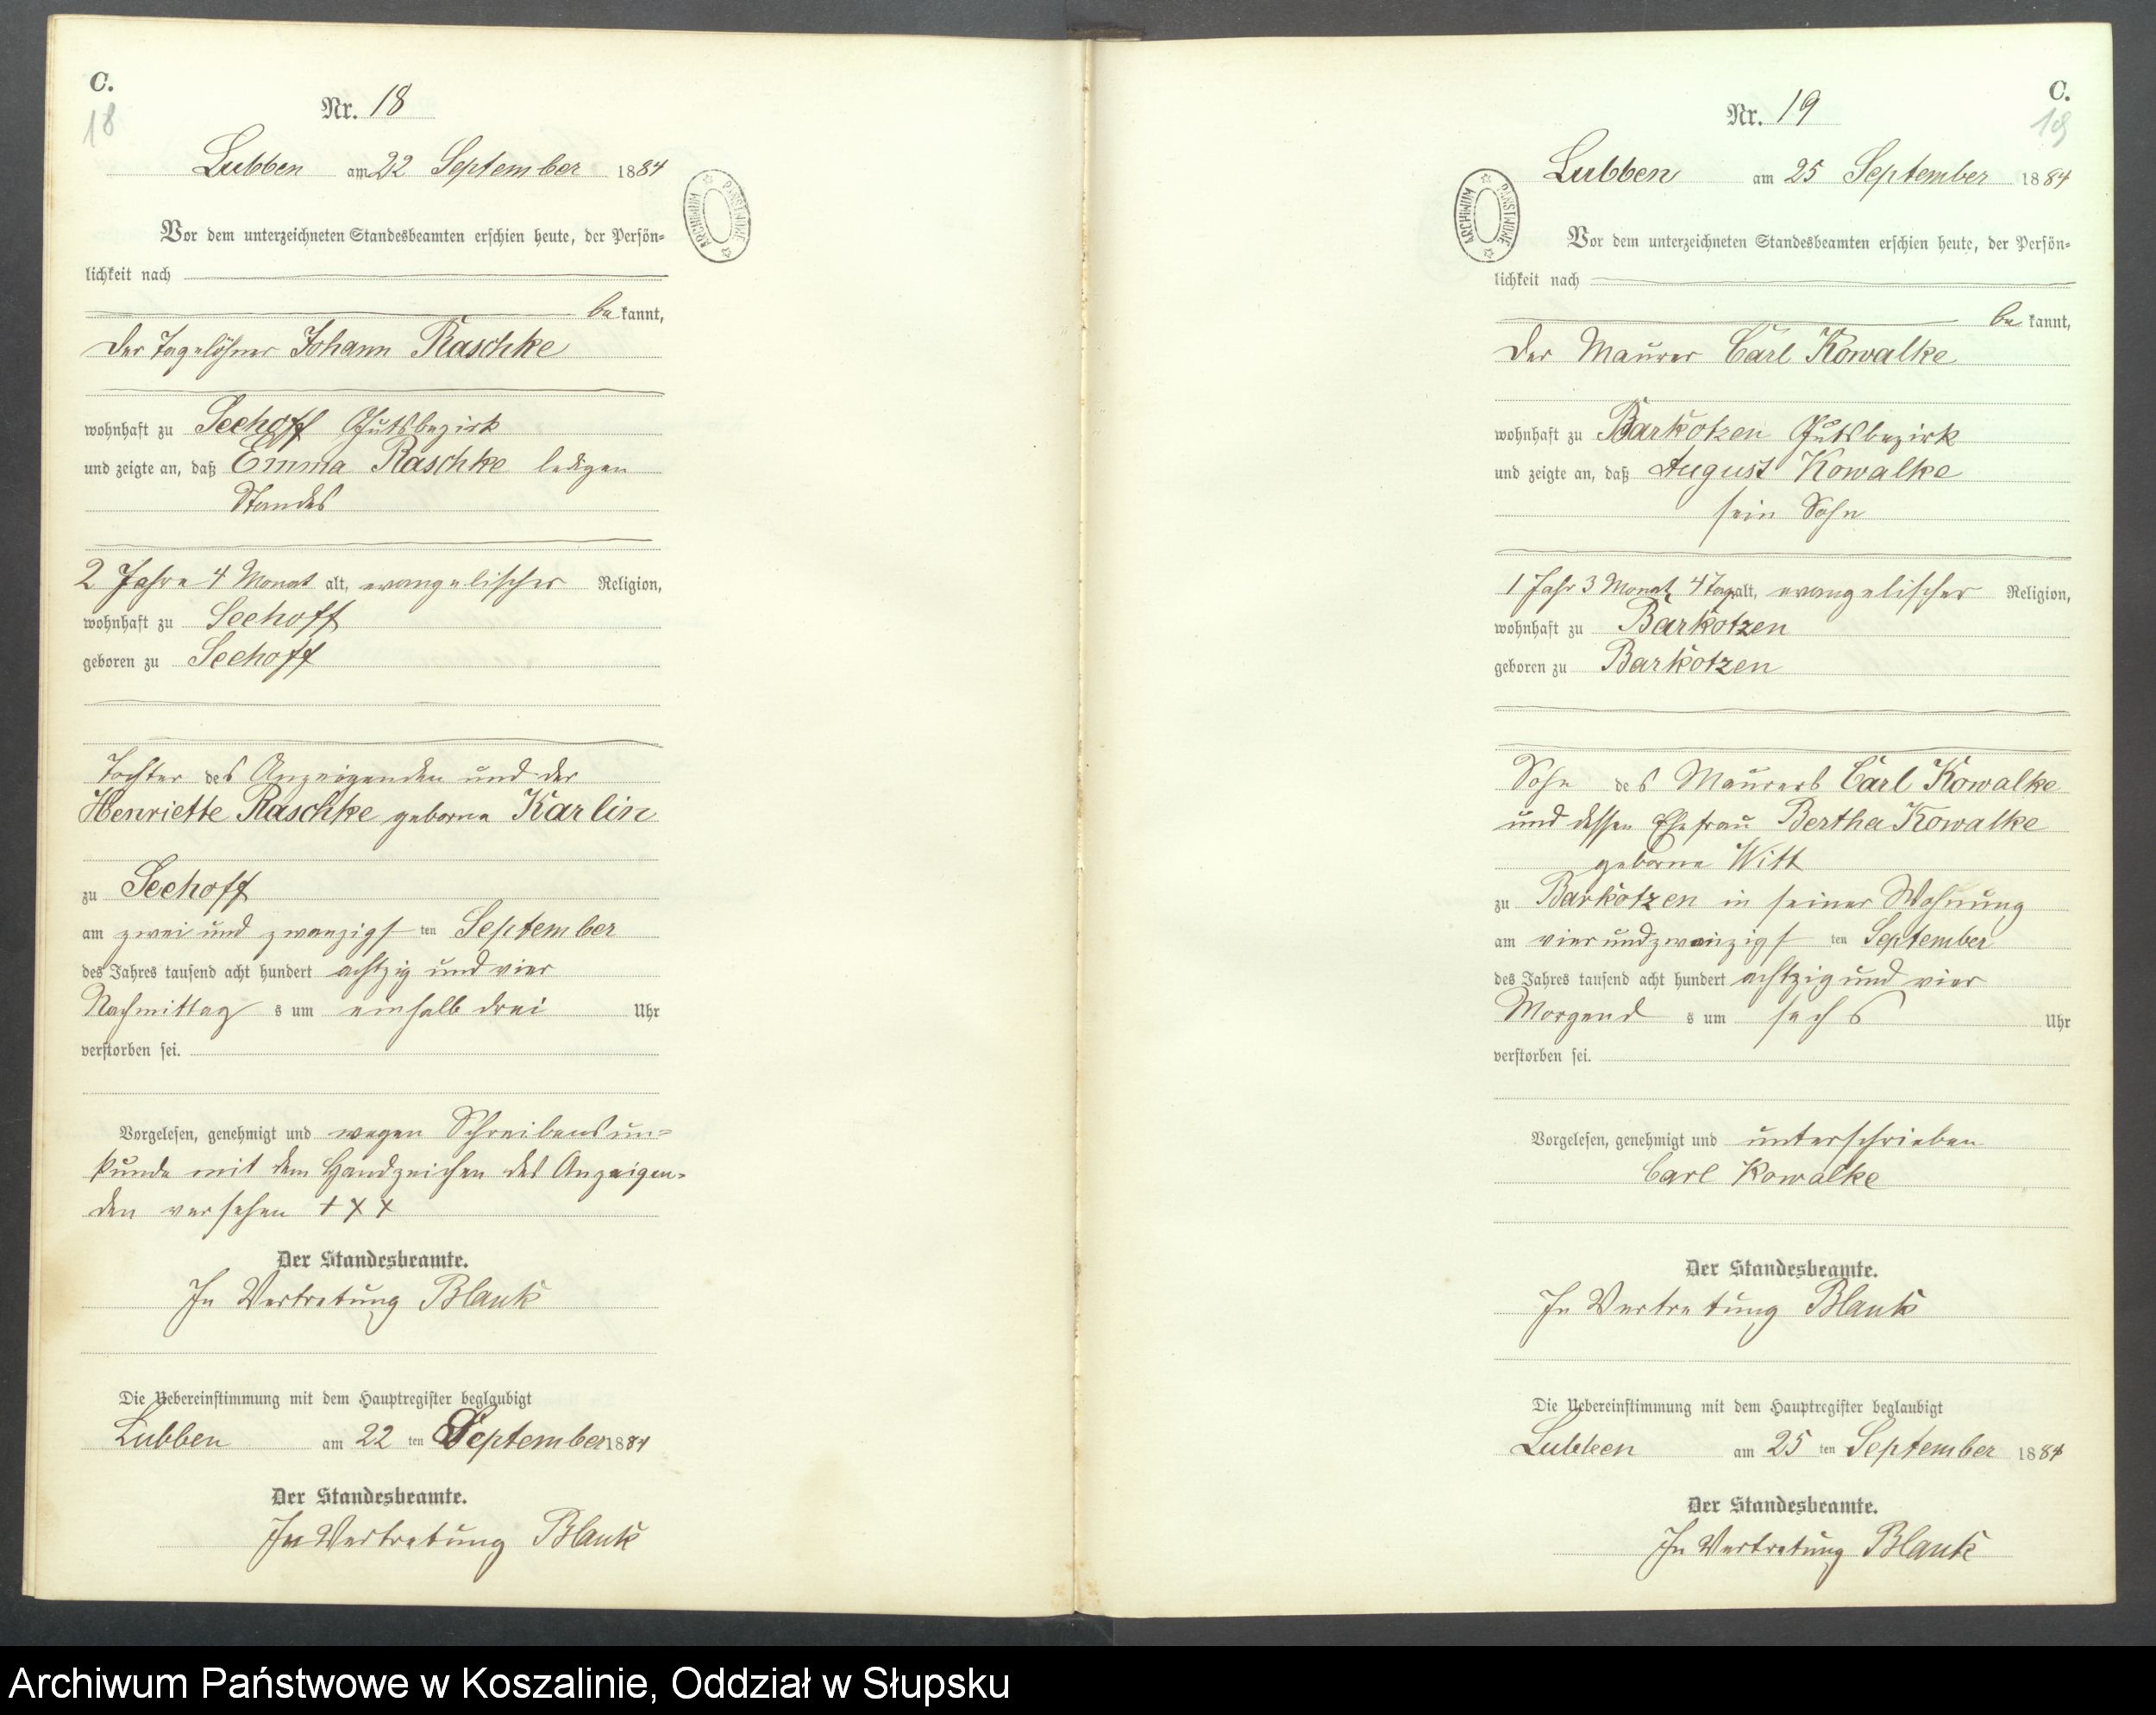 C.
18
Nr. 18
Lubben am 22 September 1884
Vor dem unterzeichneten Standesbeamten erschien heute, der Persön=
lichkeit nach
be kannt,
der Tagelöhner Johann Raschke
wohnhaft zu Seehoff Gutsbezirk
und zeigte an, daß Emma Raschke ledigen
Standes
2 Jahre 4 Monat alt, evangelischer Religion,
wohnhaft zu Seehoff
geboren zu Seehoff
Tochter des Anzeigenden und der
Henriette Raschke geborne Karlin
zu Seehoff
am zwei und zwanzigsten September
des Jahres tausend acht hundert achtzig und vier
Nachmittag s um einhalb drei Uhr
verstorben sei.
Vorgelesen, genehmigt und wegen Schreibensun=
kunde mit dem Handzeichen des Anzeigen=
den versehen + + +
Der Standesbeamte.
In Vertretung Blank
Die Uebereinstimmung mit dem Hauptregister beglaubigt
Lubben am 22 ten September 1884
Der Standesbeamte.
In Vertretung Blank
C.
19
Nr. 19
Lubben am 25 September 1884
Vor dem unterzeichneten Standesbeamten erschien heute, der Persön=
lichkeit nach
be kannt,
der Maurer Carl Kowalke
wohnhaft zu Barkotzen Gutsbezirk
und zeigte an, daß August Kowalke
sein Sohn
1 Jahr 3 Monat 4 Tag alt, evangelischer Religion,
wohnhaft zu Barkotzen
geboren zu Barkotzen
Sohn des Maurers Carl Kowalke
und dessen Ehefrau Bertha Kowalke
geborne Witt
zu Barkotzen in seiner Wohnung
am vier und zwanzigsten September
des Jahres tausend acht hundert achtzig und vier
Morgend s um sechs Uhr
verstorben sei.
Vorgelesen, genehmigt und unterschrieben
Carl Kowalke
Der Standesbeamte.
In Vertretung Blank
Die Uebereinstimmung mit dem Hauptregister beglaubigt
Lubben am 25 ten September 1884
Der Standesbeamte.
In Vertretung Blank
ARCHIWUM PAŃSTWOWE
ARCHIWUM PAŃSTWOWE
Archiwum Państwowe w Koszalinie, Oddział w Słupsku